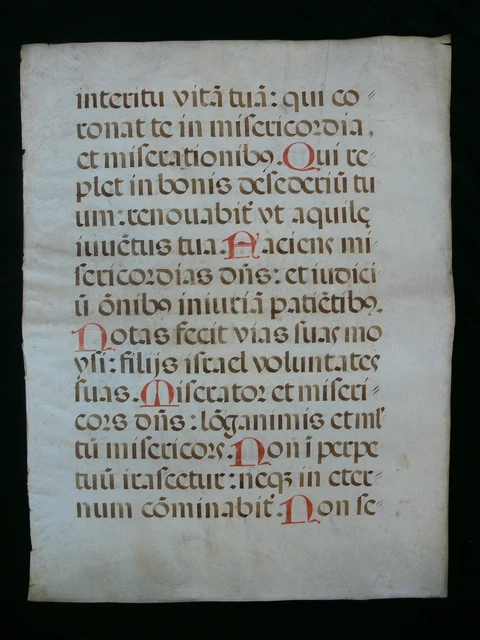 interitu vitā tuā: qui co⸗
ronat te in misericordia,
et miserationibꝯ. Qui re⸗
plet in bonis desederiū tu
um: renouabit̃ vt aquilę
iuuētus tua. Faciens mi⸗
sericordias dn̄s: et iudici
ū ōnibꝯ iniuriā patiētibꝯ.
Notas fecit vias suas mo
ysi: filijs israel voluntates
suas. Miserator et miseri⸗
cors dn̄s: lōganimis et ml̄
tū misericors. Non ī perpe
tuū irascetur: neqꝫ in eter⸗
num cōminabit̃. Non se⸗